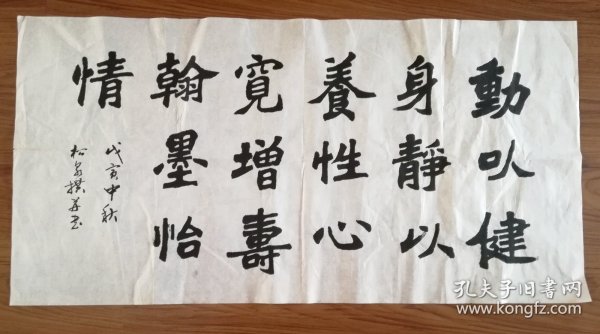 動以健
身靜以
養性心
寬增壽
翰墨怡
情
戊寅中秋
松泉撰并书
孔夫子旧书网
www.kongfz.com